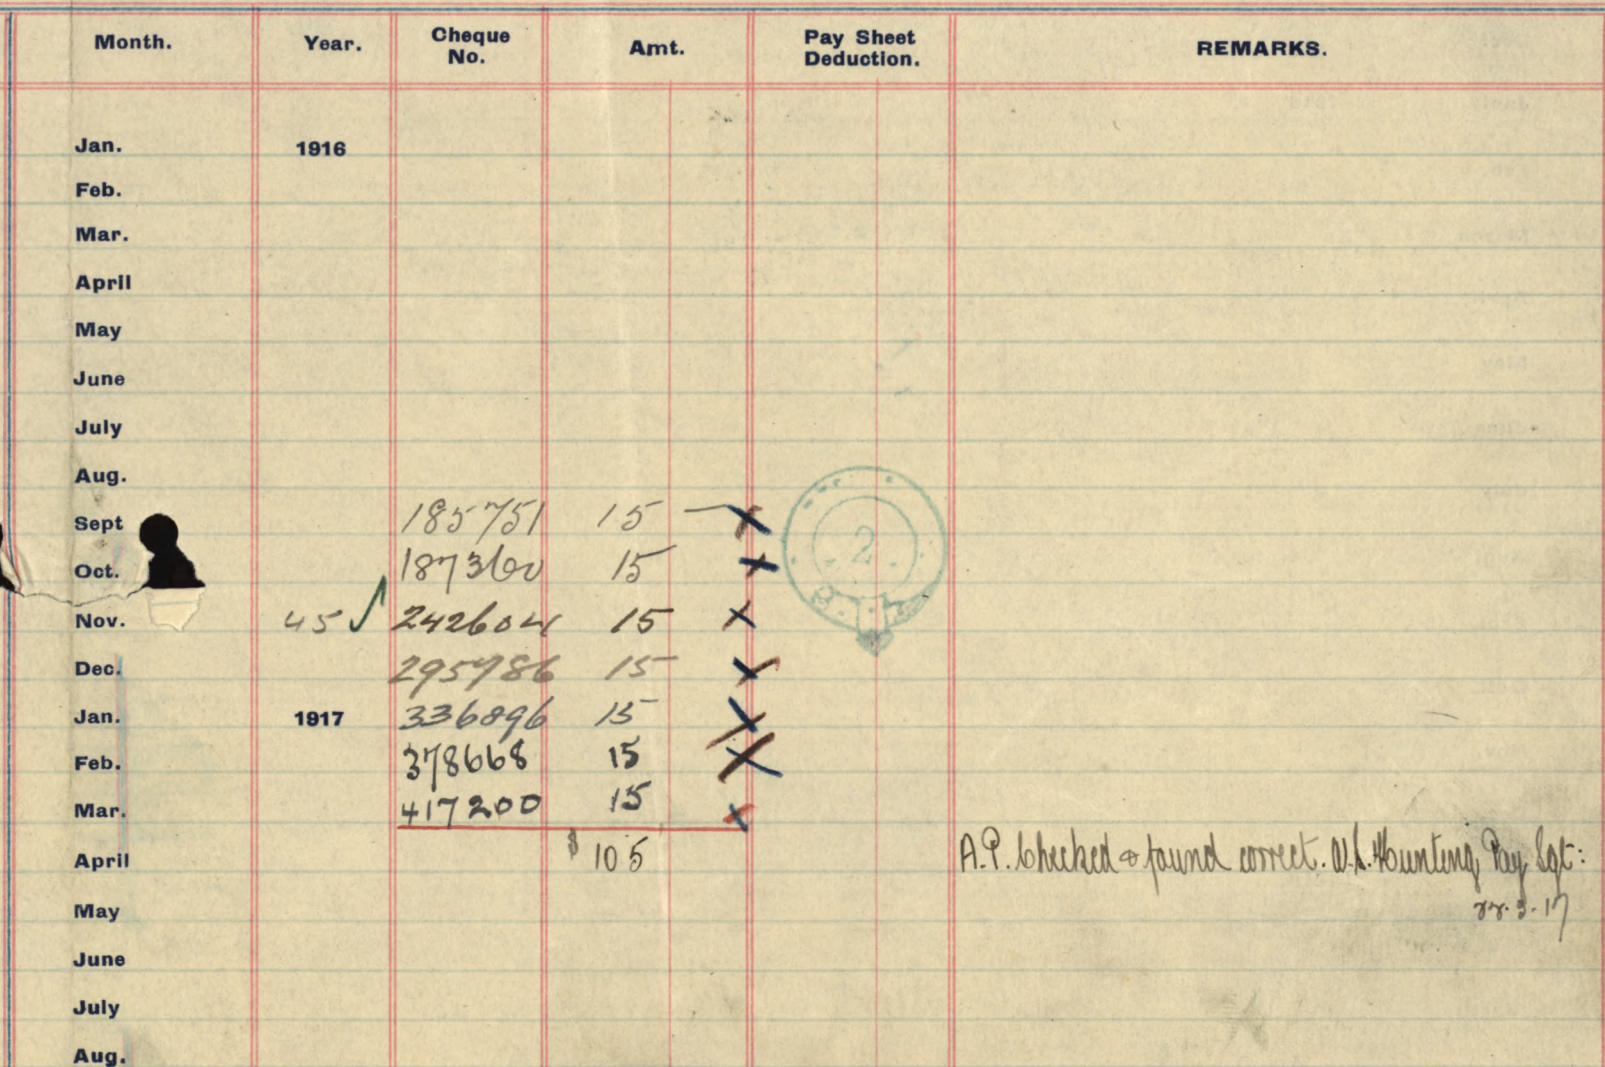 Month. Year. Cheque No. Amt. Pay Sheet Deduction. REMARKS.
Jan. 1916
Feb.
Mar.
April
May
June
July
Aug.
Sept 185751 15 —
Oct. 187360 15
2
Nov. 45 ✓ 242604 15
Dec. 295986 15
Jan. 1917 336896 15
Feb. 378668 15
Mar. 417200 15
April $ 105 A.P. Checked & found correct. W.S. Hunting Pay Sgt:
May 22.3.17
June
July
Aug.